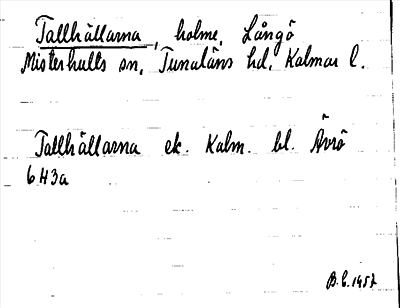 Tallhällarna, holme, Långö
Misterhults sn, Tunaläns hd, Kalmar l.
Tallhällarna ek. Kalm. bl. Ävrö
6H3a
B.L. 1957